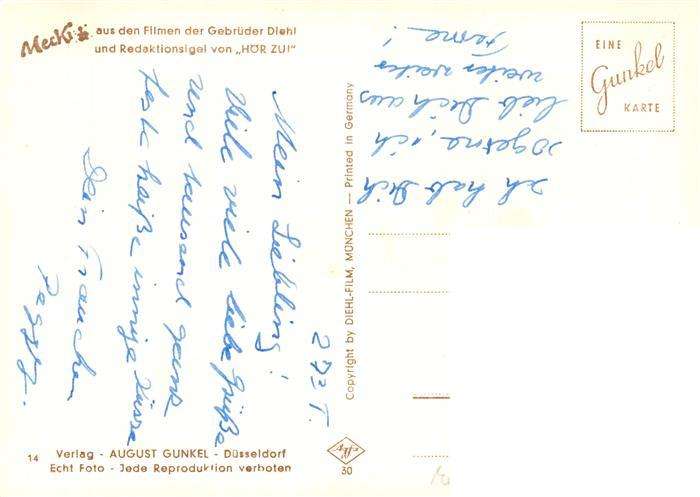 Mecki aus den Filmen der Gebrüder Diehl
und Redaktionsigel von „HÖR ZU!"
Mein Liebling!
Viele viele liebe Grüße
und tausend ganz
feste heiße innige Küsse
Dein Frauchen
Peggy.
Ich hab Dich
so gerne, ich
lieb Dich aus
weiter weiter
Ferne!
EINE
Gunkel
KARTE
Copyright by DIEHL-FILM, MÜNCHEN — Printed in Germany
14 Verlag - AUGUST GUNKEL - Düsseldorf
Echt Foto - Jede Reproduktion verboten
30